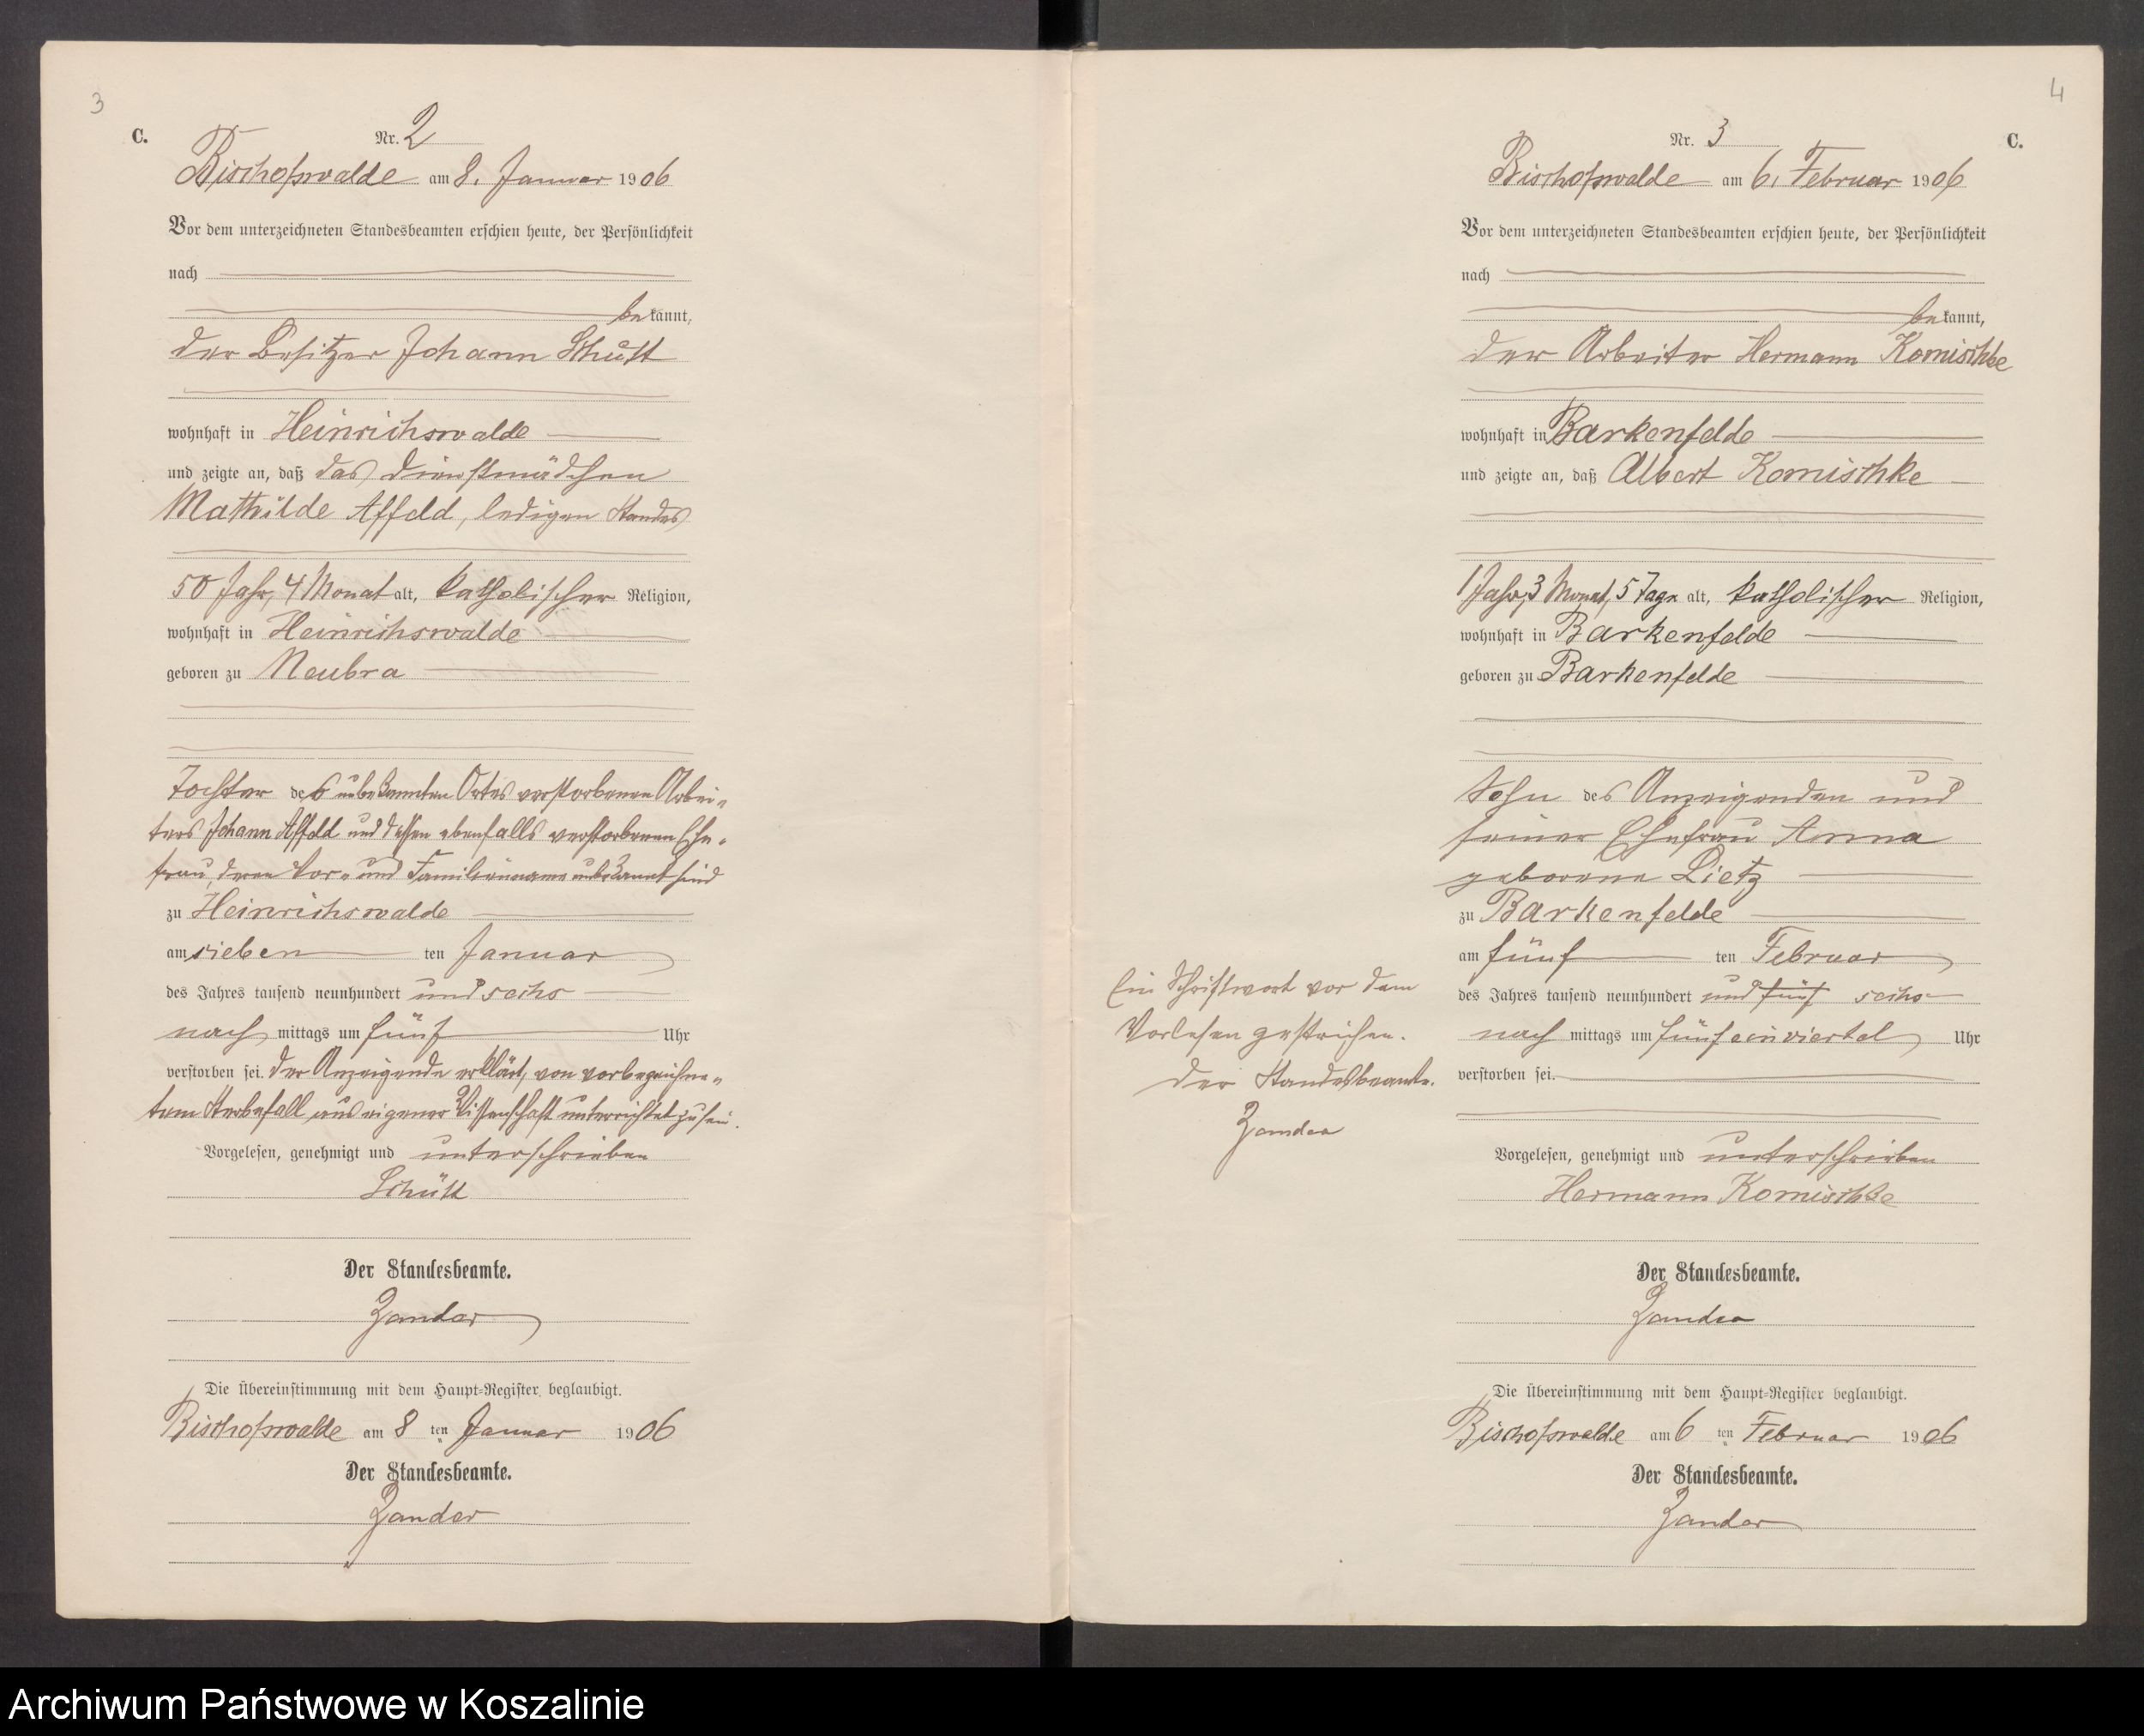 3
C.
Nr. 2
Bischofswalde am 8. Januar 1906
Vor dem unterzeichneten Standesbeamten erschien heute, der Persönlichkeit
nach
bekannt,
der Besitzer Johann Schütt
wohnhaft in Heinrichswalde
und zeigte an, daß das Dienstmädchen
Mathilde Affeld, ledigen Standes
50 Jahr, 4 Monat alt, katholischer Religion,
wohnhaft in Heinrichswalde
geboren zu Neubra
Tochter des unbekannten Ortes verstorbenen Arbei-
ters Johann Affeld und dessen ebenfalls verstorbenen Ehe-
frau, deren Vor- und Familienname unbekannt sind
zu Heinrichswalde
am sieben ten Januar
des Jahres tausend neunhundert und sechs
nach mittags um fünf Uhr
verstorben sei. Der Anzeigende erklärt, von vorbezeichne-
tem Sterbefall aus eigener Wissenschaft unterrichtet zu sein.
Vorgelesen, genehmigt und unterschrieben
Schütt
Der Standesbeamte.
Zander
Die Übereinstimmung mit dem Haupt-Register beglaubigt.
Bischofswalde am 8 ten Januar 1906
Der Standesbeamte.
Zander
4
Nr. 3
C.
Bischofswalde am 6. Februar 1906
Vor dem unterzeichneten Standesbeamten erschien heute, der Persönlichkeit
nach
bekannt,
der Arbeiter Hermann Komischke
wohnhaft in Barkenfelde
und zeigte an, daß Albert Komischke
1 Jahr, 3 Monat, 5 Tage alt, katholischer Religion,
wohnhaft in Barkenfelde
geboren zu Barkenfelde
Sohn des Anzeigenden und
seiner Ehefrau Anna
geborene Lietz
zu Barkenfelde
am fünf ten Februar
des Jahres tausend neunhundert und fünf sechs
nach mittags um fünf einviertel Uhr
verstorben sei.
Ein Schriftwort vor dem
Vorlesen gestrichen.
Der Standesbeamte.
Zander
Vorgelesen, genehmigt und unterschrieben
Hermann Komischke
Der Standesbeamte.
Zander
Die Übereinstimmung mit dem Haupt-Register beglaubigt.
Bischofswalde am 6 ten Februar 1906
Der Standesbeamte.
Zander
Archiwum Państwowe w Koszalinie